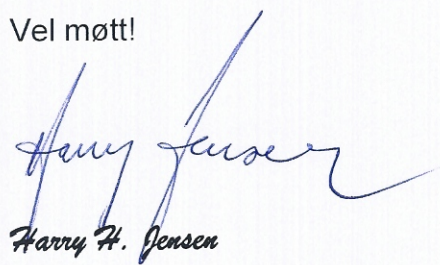 Vel møtt!
Harry Jensen
Harry H. Jensen